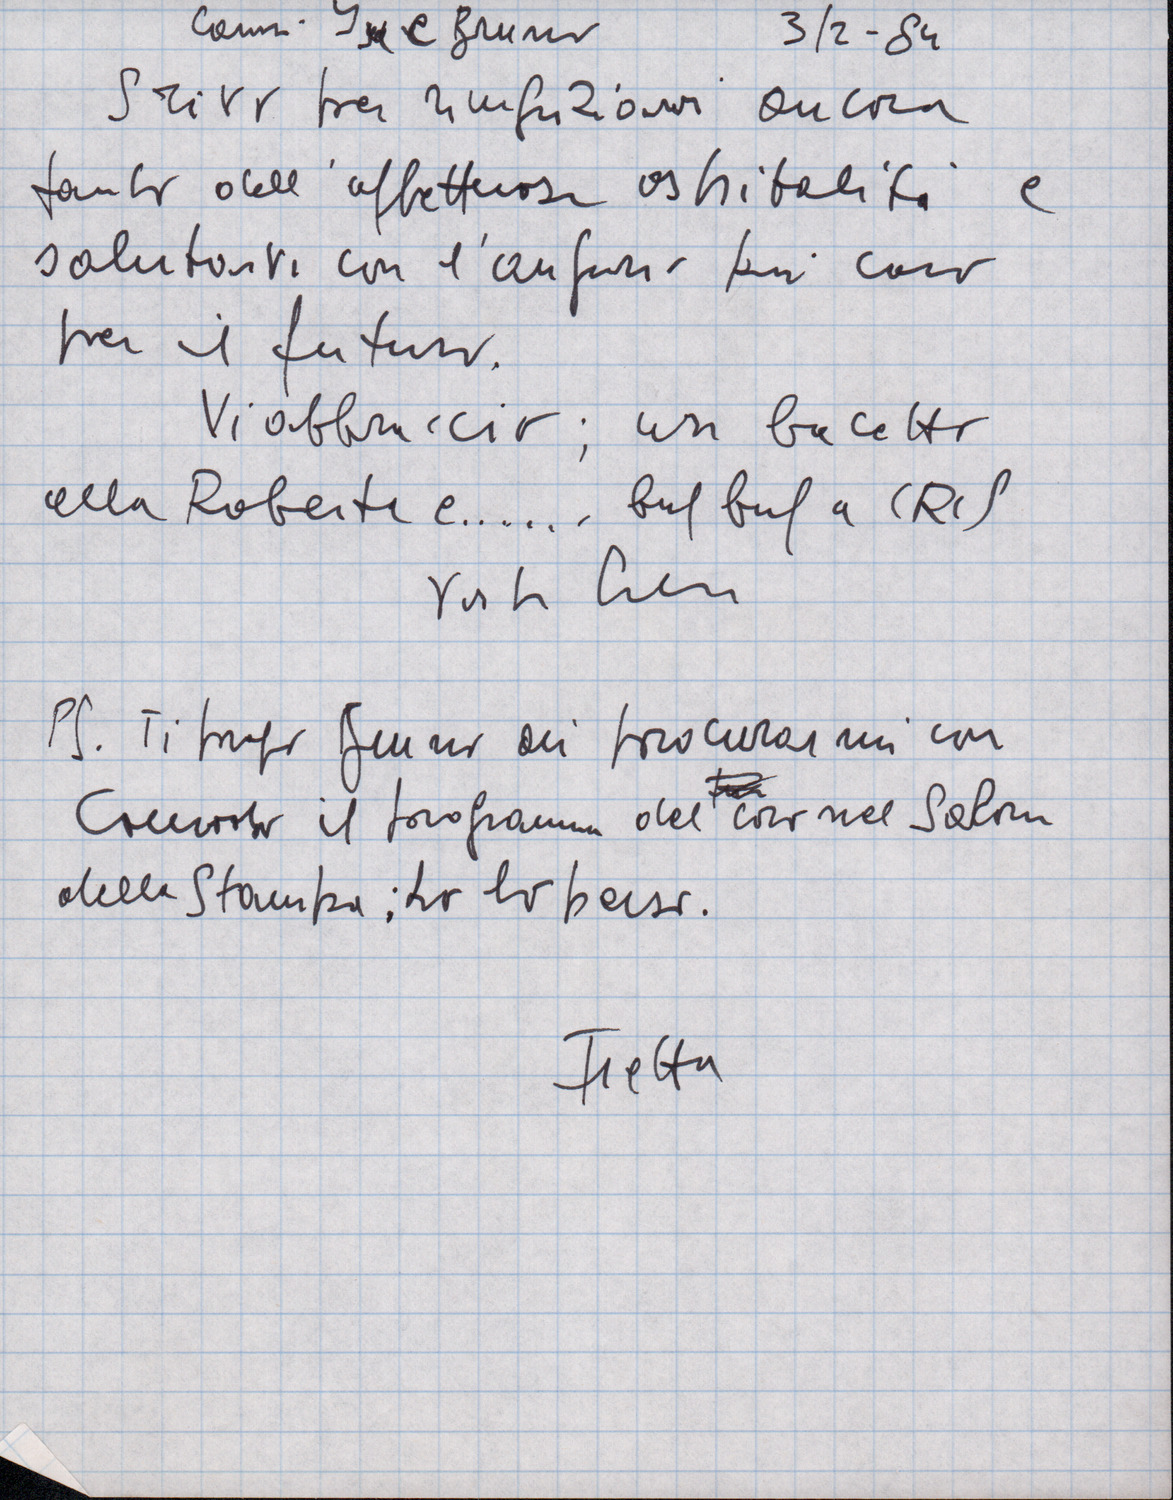 Cari Ive e Bruno 3/2-84
Scrivo per ringraziarvi ancora
tanto dell'affettuosa ospitalità e
salutarvi con l'augurio più caro
per il futuro.
Vi abbraccio; un bacetto
alla Roberta e...... buf buf a
Vostra
PS. Ti prego Bruno di procurarmi con
Comodo il programma del coro nel Salone
della Stampa; ho lo perso.
Fretta